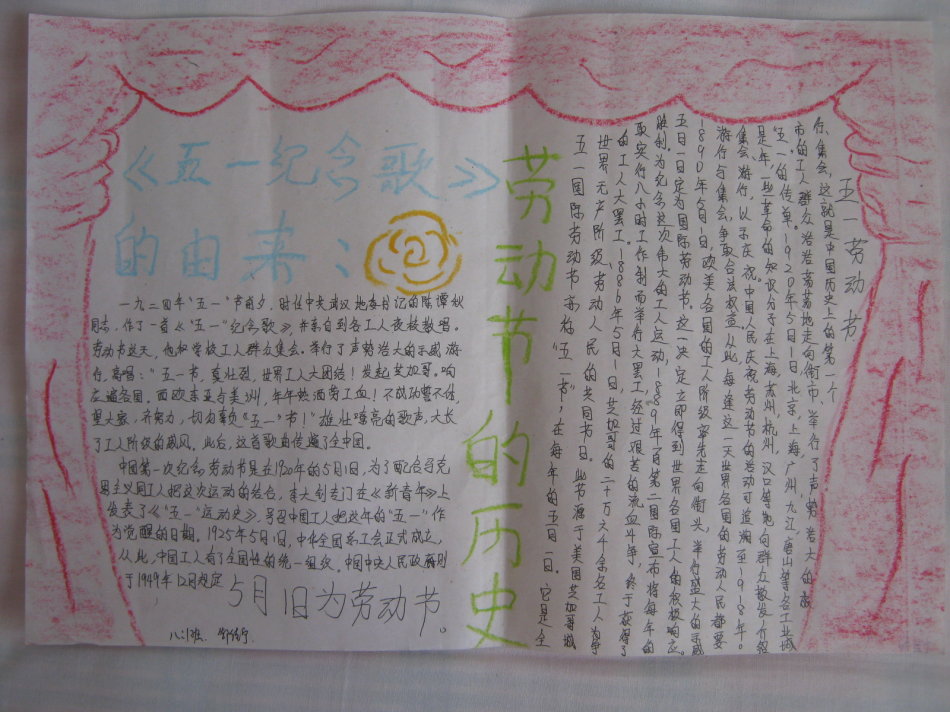 《五一纪念歌》
的由来：
一九二四年“五一”节前夕，时任中共武汉地委书记的陈潭秋
同志，作了一首《“五一”纪念歌》，并亲自到各工人夜校教唱。
劳动节这天，他和学校工人群众集会。举行了声势浩大的示威游
行，高唱：“五一节，真壮烈，世界工人大团结！发起芝加哥。响
应遍各国。西欧东亚与美洲，年年热洒劳工血！不成功誓不休，
望大家，齐努力，切勿辜负《“五一”节！”雄壮嘹亮的歌声，大长
了工人阶级的威风，此后，这首歌曲传遍了全中国。
中国第一次纪念劳动节是在1920年的5月1日，为了配合马克
思主义同工人把这次运动的结合，李大钊专门在《新青年》上
发表了《“五一”运动史》，号召中国工人把这年的“五一”作
为觉醒的日期。1925年5月1日，中华全国总工会正式成立，
从此，中国工人有了全国性的统一组织。中国中央人民政府则
于1949年12月规定
5月1日为劳动节。
劳动节的历史
五一国际劳动节亦称“五一节”，在每年的五月一日。它是全
世界无产阶级劳动人民的共同节日。此节源于美国芝加哥城
的工人大罢工，1886年5月1日，芝加哥的二十万六千余名工人为争
取实行八小时工作制而举行大罢工，经过艰苦的流血斗争，终于获得了
胜利。为纪念这次伟大的工人运动，1889年7月第二国际宣布将每年的
五月一日定为国际劳动节。这一决定立即得到世界各国工人的积极响应。
1890年5月1日，欧美各国的工人阶级率先走向街头，举行盛大的示威
游行与集会，争取合法权益。从此，每逢这一天世界各国的劳动人民都要
集会、游行，以示庆祝。中国人民庆祝劳动节的活动可追溯至1918年。
是年，一些革命的知识分子在上海，苏州，杭州，汉口等地向群众散发介绍
“五一”的传单。1920年5月1日，北京，上海，广州，九江，唐山等各工业城
市的工人群众浩浩荡荡地走向街市，举行了声势浩大的游
行、集会，这就是中国历史上的第一个
五一劳动节